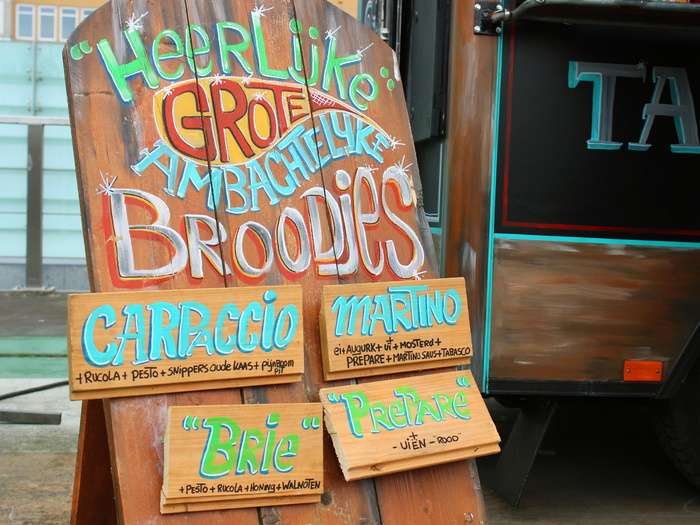 "HEERLIJKE"
GROTE
AMBACHTELIJKE
BROODJES
TA
CARPACCIO
+ RUCOLA + PESTO + SNIPPERS OUDE KAAS + PIJNBOOM
PIT
MARTINO
ei + AUGURK + ui + MOSTERD +
PREPARE + MARTINI SAUS + TABASCO
"PREPARÉ"
+
- UiEN - ROOD
"BRIE"
+ PESTO + RUCOLA + HONING + WALNOTEN